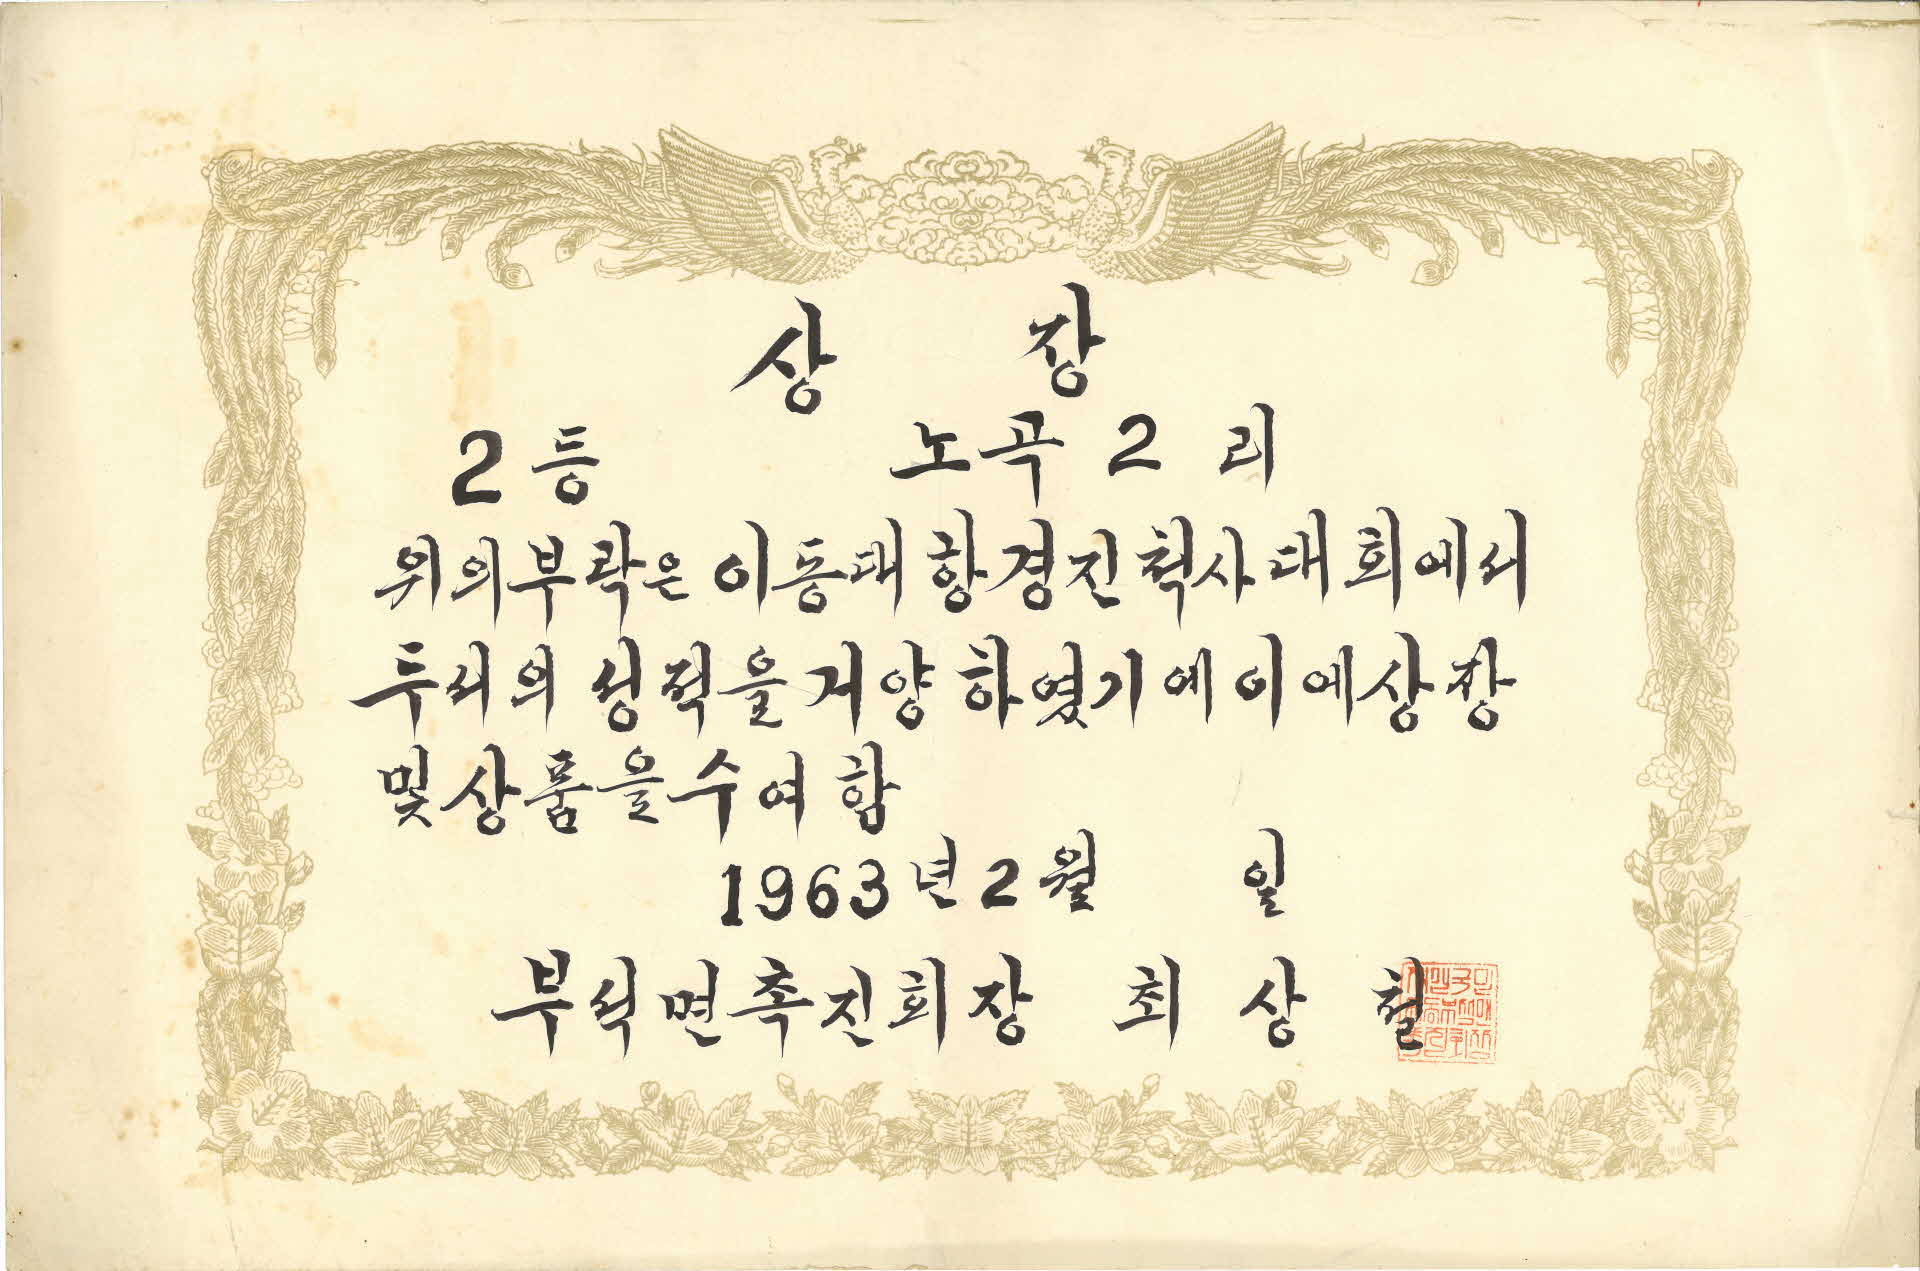 상 장
2등 노곡 2 리
위의부락은 이동대항경진척사대회에서
두서의 성적을 거양하였기에 이에상장
및상품을수여함
1963년 2월 일
부석면촉진회장 최 상 철